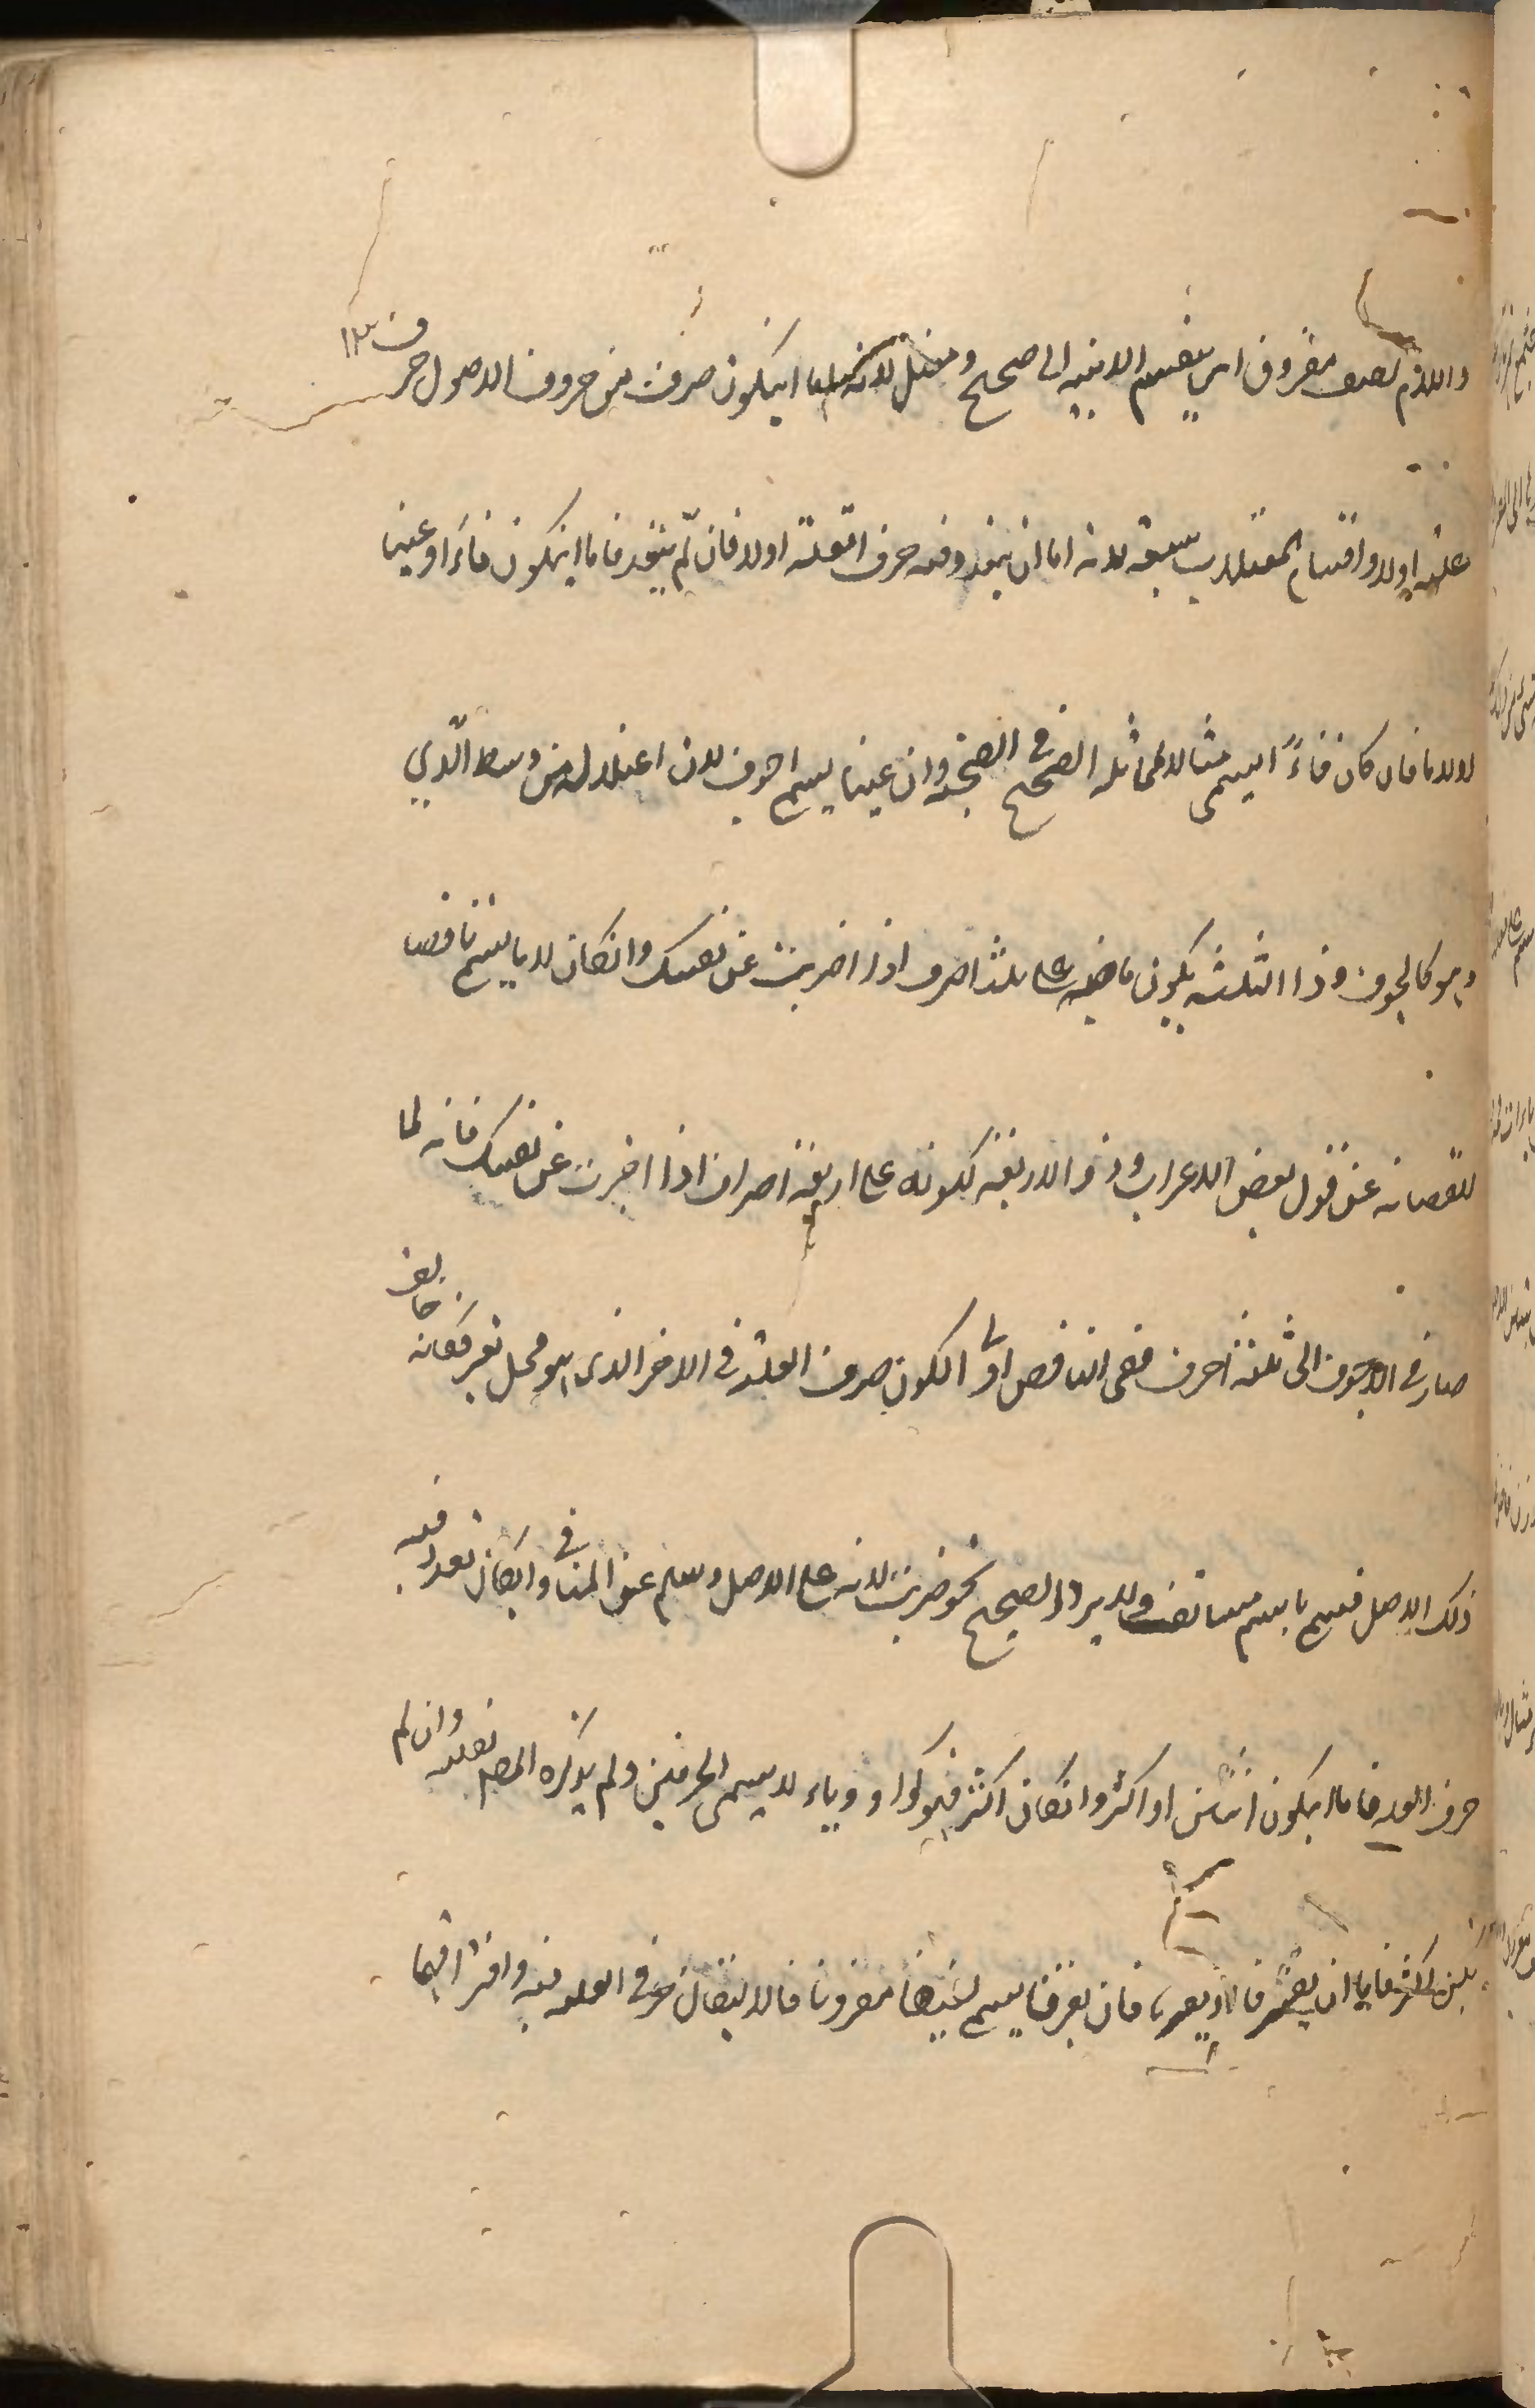 واللام لفيف مفروق اي ينقسم الابنية الى صحيح ومعتل لانه اما ايكون حرف من حروف الاصول حرف
علة اولا واقسام المعتلات سبعة لانه اما ان يتعدد فيه حرف العلة اولا فان لم يتعدد فاما ايكون فاءً او عينا
او لاما فان كان فاءً يسمى مثالا لمماثلة الصحيح في الصحة وان عينا يسم اجوف لان اعتلاله من وسط الذي
هو كالجوف وذا الثلثة يكون ماضيه على ثلثة احرف اذا اخبرت عن نفسك وانكان لاما يسم ناقصا
لنقصانه عن قبول بعض الاعراب وذو الاربعة لكونه على اربعة احرف اذا اخبرت عن نفسك فانه لما
صار في الاجوف الى ثلثة احرف ففي الناقص اولى لكون حرف العلة في الاخر الذي هو محل تغير فكانه خالف
ذلك الاصل فسم باسم ولا يرد الصحيح نحو ضربت لانه على الاصل وسلم عن المنافي وانكان تعدد فيه
حرف العلة فاما ايكون اثنين او اكثر وانكان اكثر فهو كواو وياء لاسمي الحرفين ولم يذكره المص لقلته وان لم
يكن اكثر فاما ان يفترقا او يقترنا فان يفترقا يسم لفيفا مفروقا فلالتفاف حرفي العلة فيه وافتراقهما